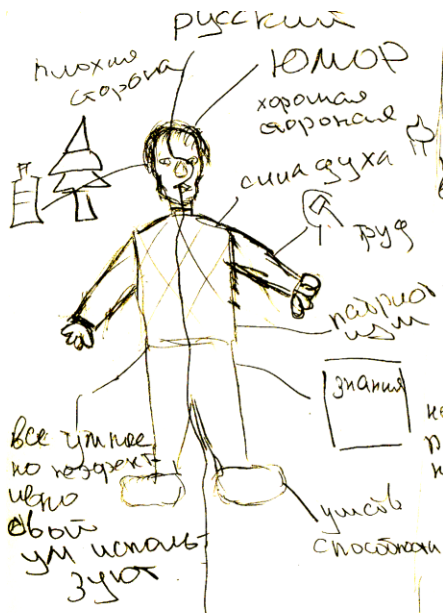 русский
плохая
сторона
юмор
хорошая
стороная
сила духа
труд
патриот
изм
знания
все умное
но неэфект-
ивно
свой
ум исполь-
зуют
умств
способности